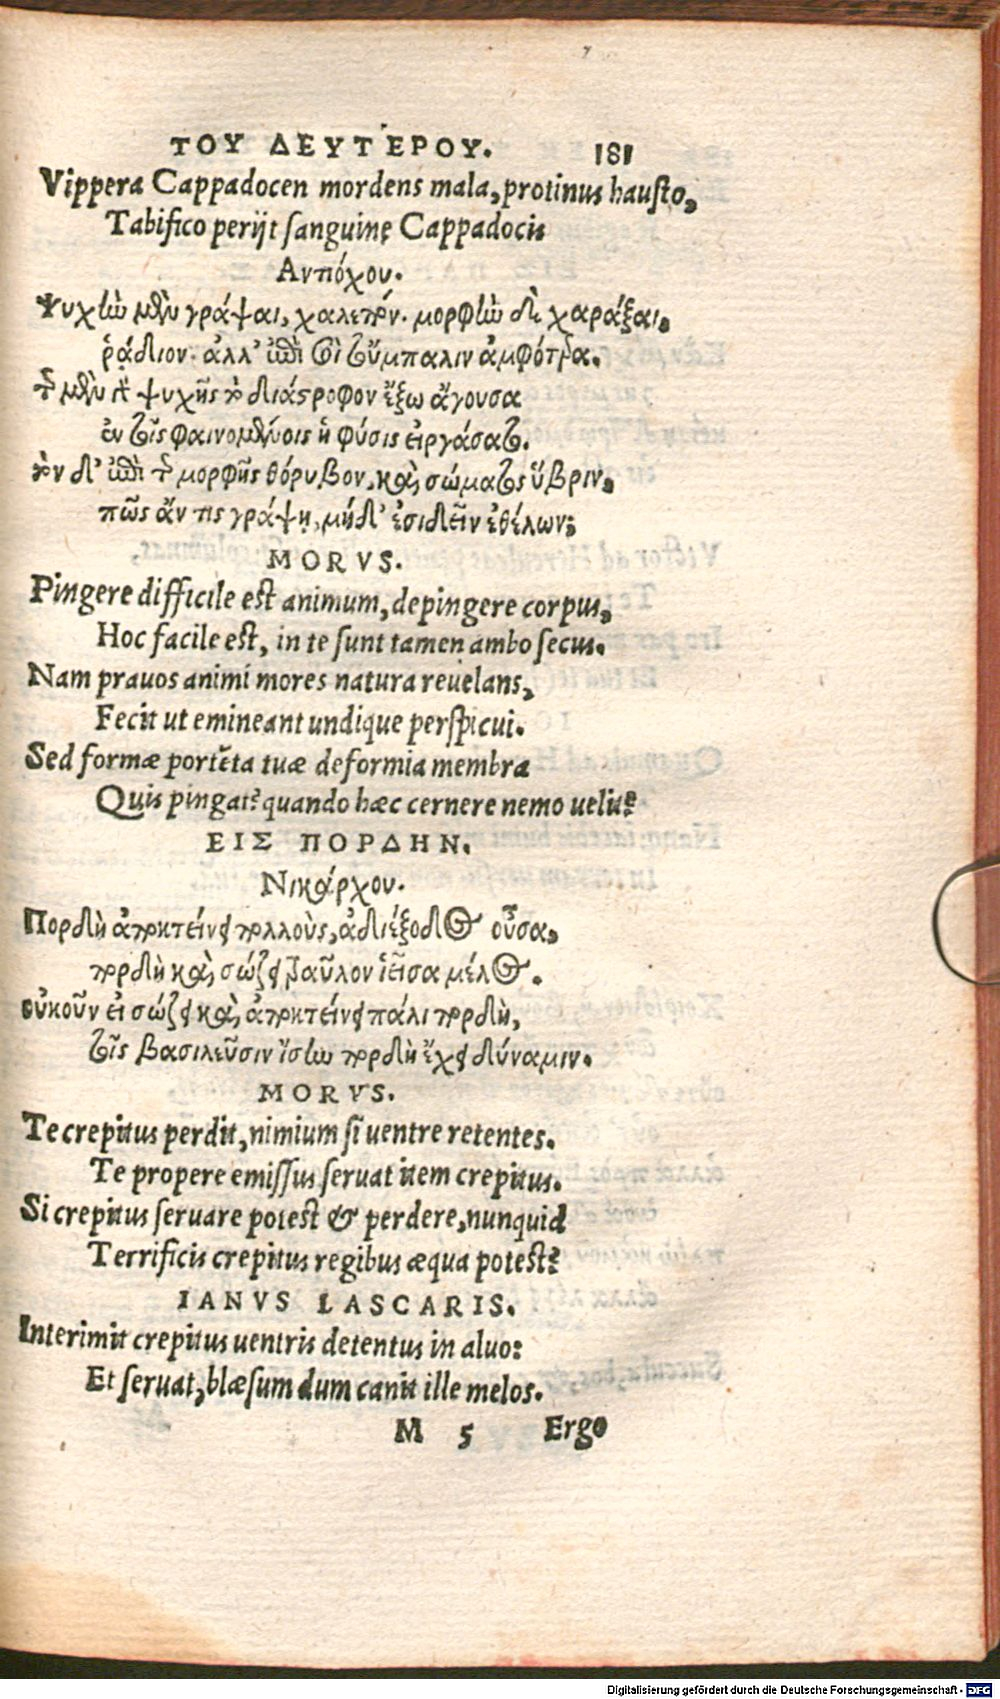 ΤΟΥ ΔΕΥΤΈΡΟΥ. 181
Vippera Cappadocen mordens mala, protinus hausto,
Tabifico perijt sanguine Cappadocis
Αντιόχου.
Ψυχὼ μὲν γράψαι, χαλεπόν. μορφὼ δὲ χαράξαι,
ῥᾴδιον. ἀλλ' ἐπὶ σοὶ τοὔμπαλιν ἀμφότερα.
τῆς μὲν γὰρ ψυχῆς τὸ διάστροφον ἔξω ἄγουσα
ἐν τοῖς φαινομένοις ἡ φύσις εἰργάσατο.
τὸν δ' ἐπὶ τῆς μορφῆς θόρυβον, καὶ σώματος ὕβριν,
πῶς ἄν τις γράψῃ, μήδ' ἐσιδεῖν ἐθέλων;
MORVS.
Pingere difficile est animum, depingere corpus,
Hoc facile est, in te sunt tamen ambo secus.
Nam pravos animi mores natura revelans,
Fecit ut emineant undique perspicui.
Sed formæ portēta tuæ deformia membra
Quis pingat? quando hæc cernere nemo velit?
ΕΙΣ ΠΟΡΔΗΝ.
Νικάρχου.
Πορδὴ ἀποκτείνει πολλοὺς, ἀδιέξοδος οὖσα,
πορδὴ καὶ σώζει τραῦλον ἱεῖσα μέλος.
οὐκοῦν εἰ σώζει καὶ ἀποκτείνει πάλι πορδὴ,
τοῖς βασιλεῦσιν ἴσλω πορδὴ ἔχει δύναμιν.
MORVS.
Te crepitus perdit, nimium si uentre retentes.
Te propere emissus seruat item crepitus.
Si crepitus seruare potest & perdere, nunquid
Terrificis crepitus regibus æqua potest?
IANVS LASCARIS.
Interimit crepitus uentris detentus in aluo:
Et seruat, blæsum dum canit ille melos.
M 5 Ergo
Digitalisierung gefördert durch die Deutsche Forschungsgemeinschaft - DFG